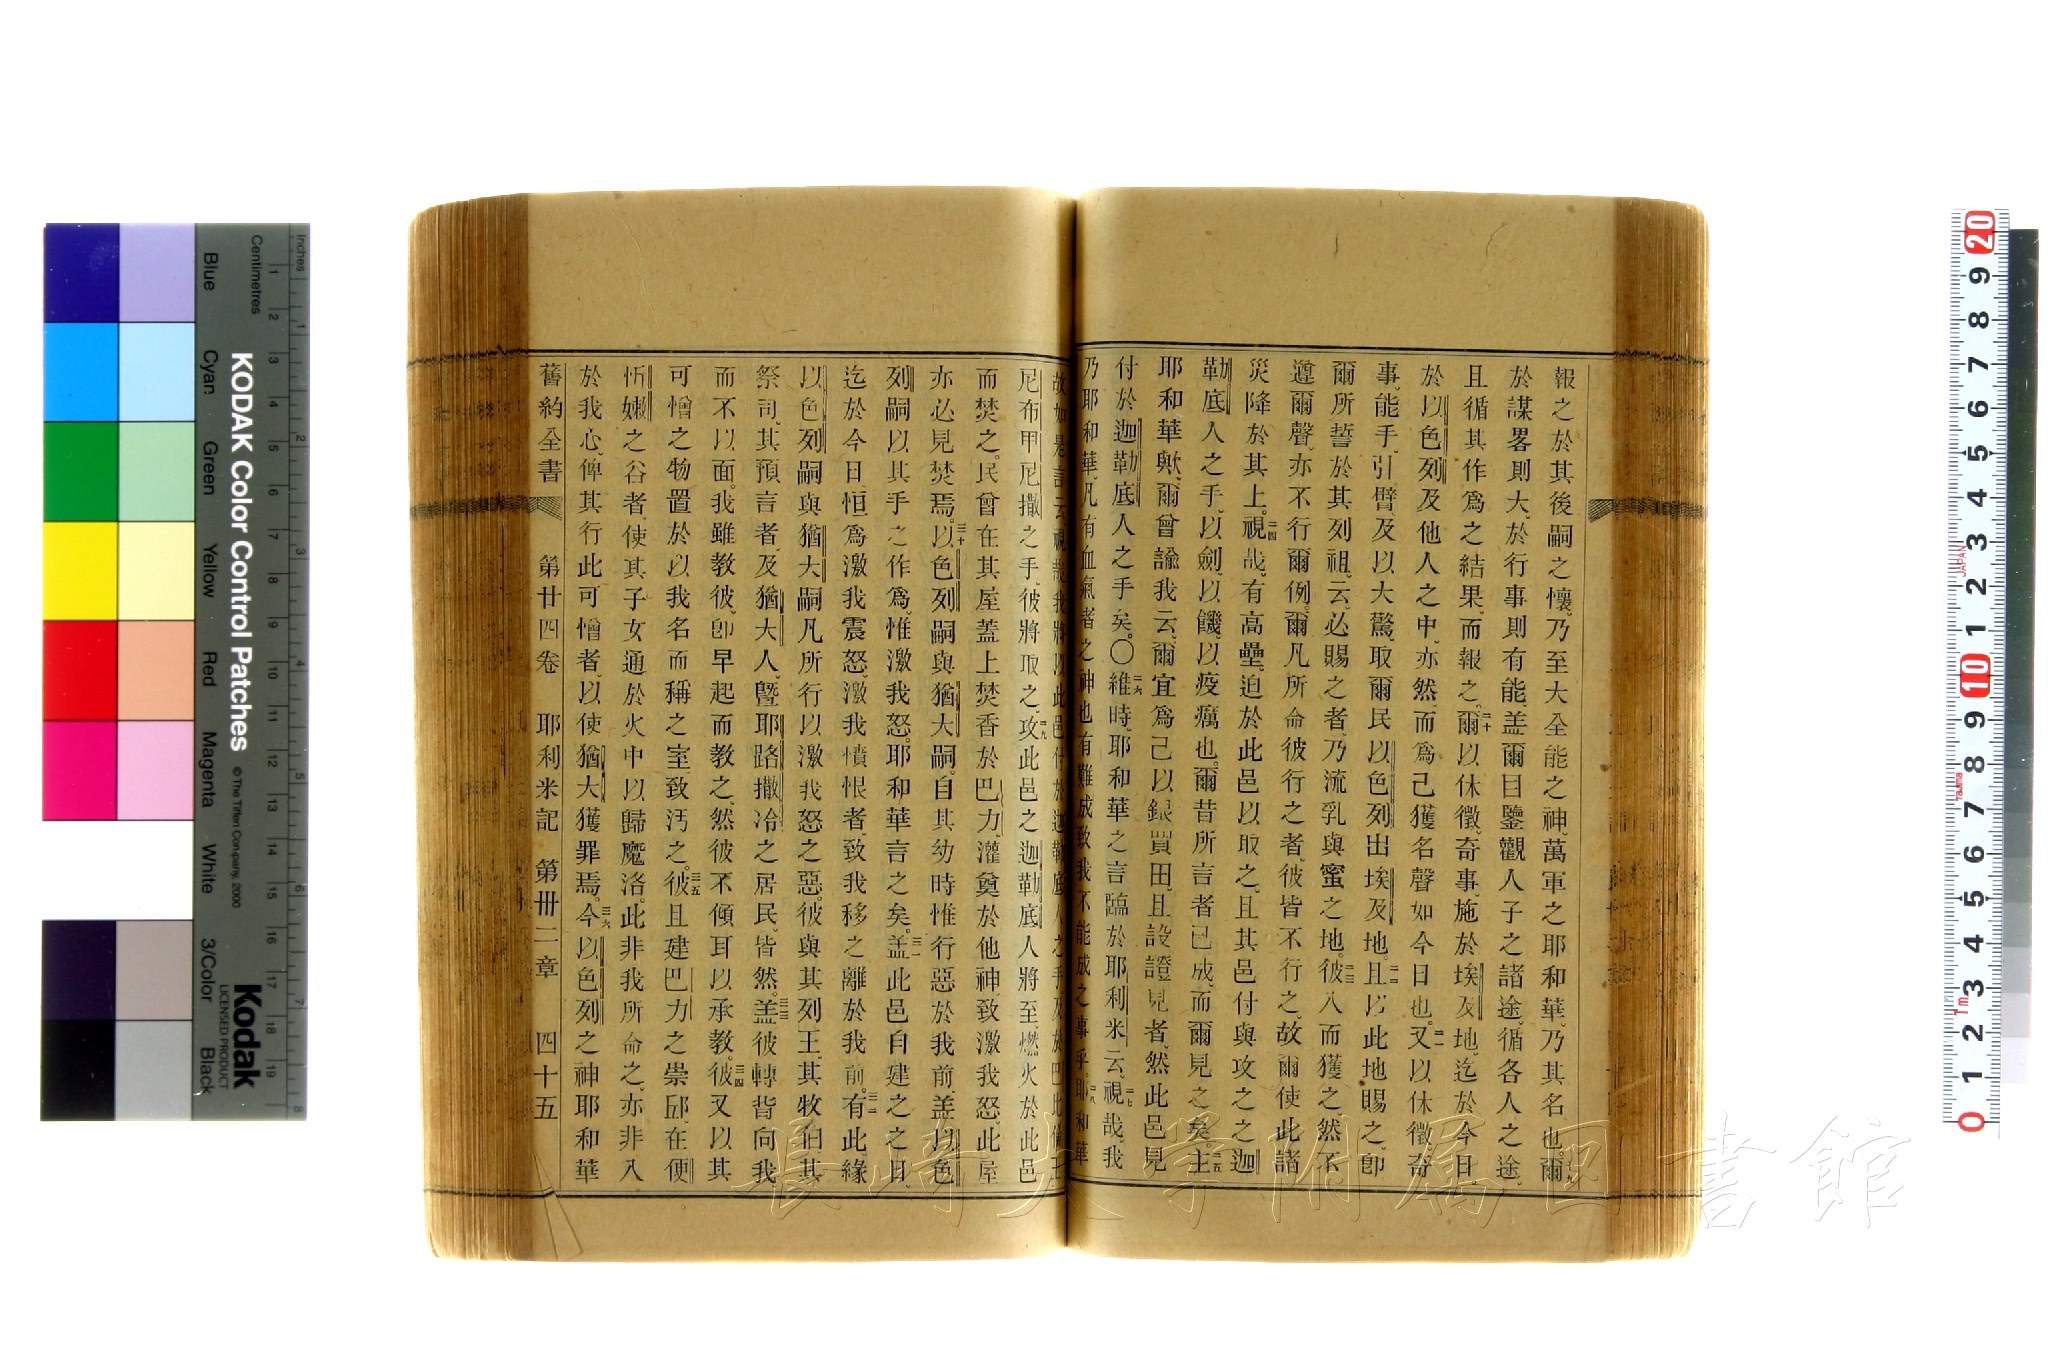 報之於其後嗣之懷。乃至大全能之神、萬軍之耶和華、乃其名也。十九爾
於謀畧則大、於行事則有能、盖爾目鑒觀人子之諸途、循各人之途、
且循其作爲之結果、而報之。二十爾以休徵、奇事、施於埃及地、迄於今日、
於以色列及他人之中、亦然、而爲己獲名聲如今日也。二一又以休徵、奇
事、能手、引臂、及以大驚、取爾民以色列出埃及地。二二且以此地賜之、卽
爾所誓於其列祖、云、必賜之者、乃流乳與蜜之地。二三彼入而獲之、然不
遵爾聲、亦不行爾例、爾凡所命彼行之者、彼皆不行之、故爾使此諸
災降於其上。二四視哉、有高壘、迫於此邑以取之、且其邑付與攻之之迦
勒底人之手、以劍、以饑、以疫癘也、爾昔所言者已成、而爾見之矣。二五主
耶和華歟、爾曾諭我云、爾宜爲己以銀買田、且設證見者、然此邑見
付於迦勒底人之手矣。〇二六維時、耶和華之言臨於耶利米云、二七視哉、我
乃耶和華、凡有血氣者之神也、有難成致我不能成之事乎。二八耶和華
故如是言云、視哉、我將以此邑付於迦勒底人之手、及於巴比倫王
尼布甲尼撒之手、彼將取之、二九攻此邑之迦勒底人將至、燃火於此邑
而焚之。民曾在其屋蓋上焚香於巴力、灌奠於他神、致激我怒、此屋
亦必見焚焉。三十以色列嗣與猶大嗣。自其幼時惟行惡於我前、盖以色
列嗣以其手之作爲、惟激我怒。耶和華言之矣。三一盖此邑自建之之日、
迄於今日恒爲激我震怒、激我憤恨者、致我移之離於我前。三二有此、緣
以色列嗣與猶大嗣凡所行以激我怒之惡。彼與其列王、其牧伯、其
祭司、其預言者、及猶大人、曁耶路撒冷之居民、皆然。三三盖彼轉背向我
而不以面。我雖教彼、卽早起而教之、然彼不傾耳以承教。三四彼又以其
可憎之物置於以我名而稱之室、致汚之。三五彼且建巴力之崇邱、在便
忻嫩之谷者、使其子女通於火中以歸魔洛。此非我所命之、亦非入
於我心、俾其行此可憎者、以使猶大獲罪焉。三六今以色列之神耶和華
舊約全書 第廿四卷 耶利米記 第卅二章 四十五
長崎大学附属図書館
KODAK Color Control Patches
© The Tiffen Company, 2000
Kodak
LICENSED PRODUCT
Inches
Centimetres
Blue
Cyan
Green
Yellow
Red
Magenta
White
3/Color
Black
1 2 3 4 5 6 7 8 9 10 11 12 13 14 15 16 17 18 19
1 2 3 4 5 6 7 8
20 9 8 7 6 5 4 3 2 1 10 9 8 7 6 5 4 3 2 1 0
JAPAN
Tajima